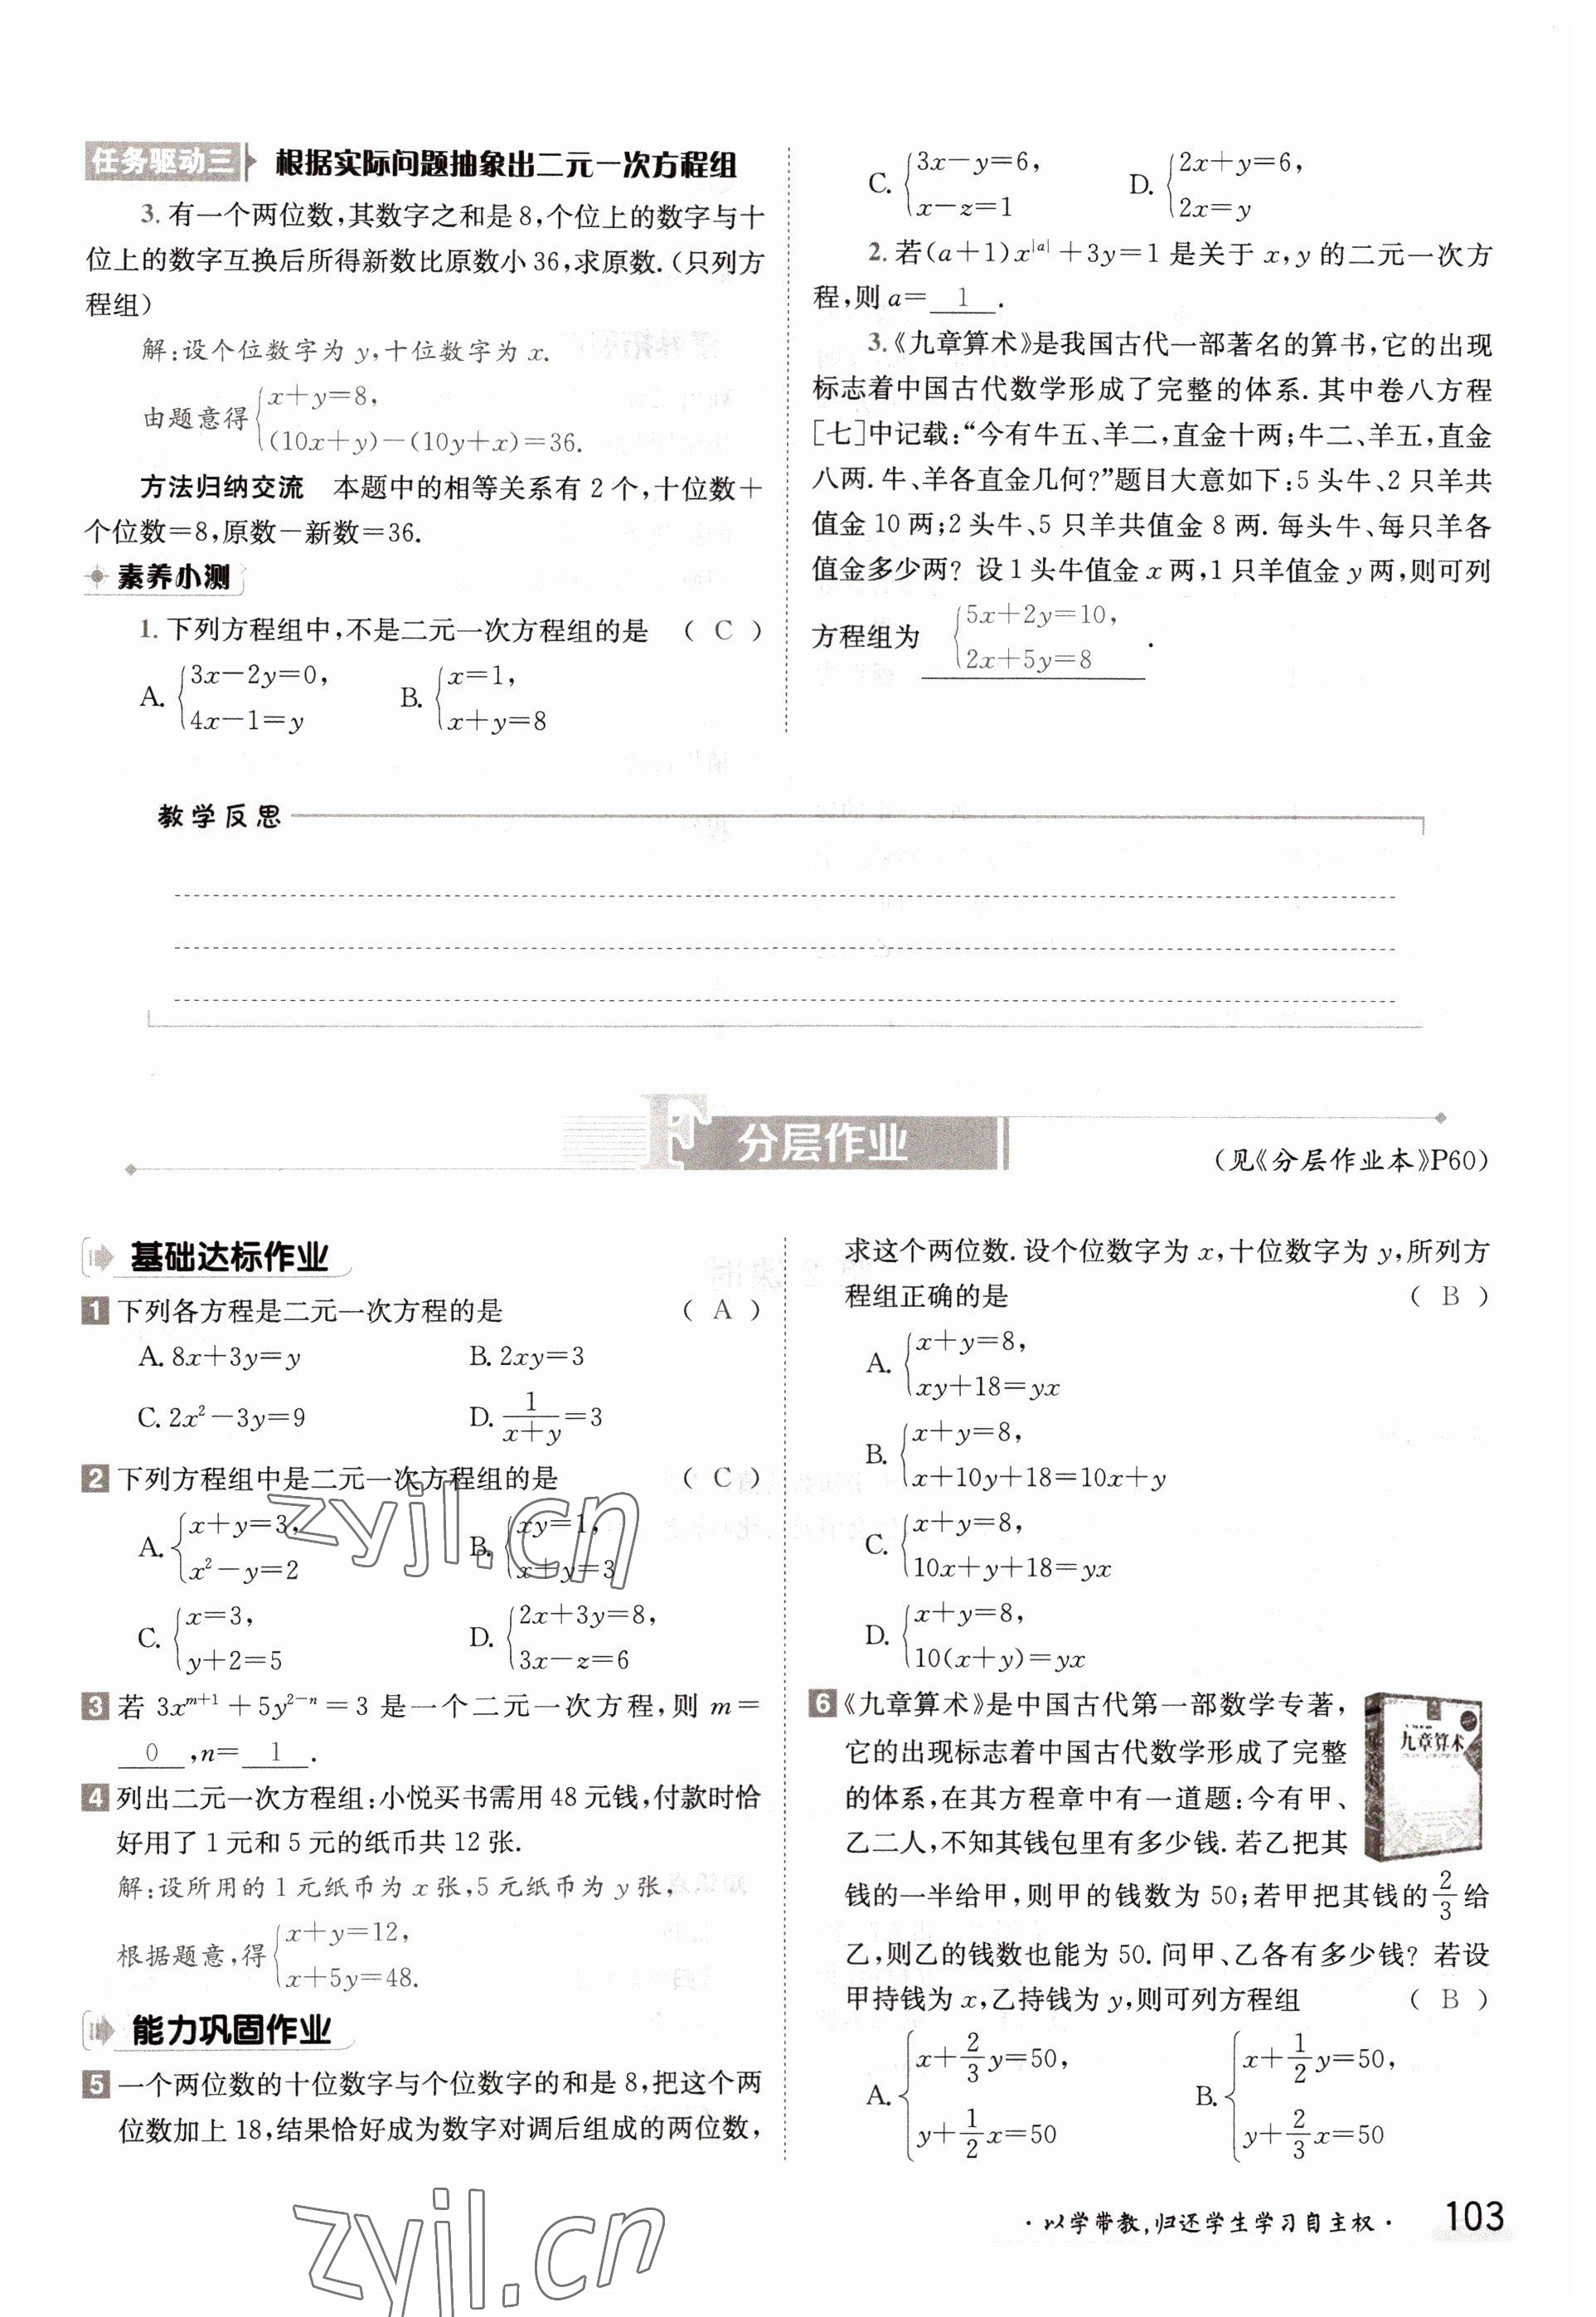 任务驱动三 根据实际问题抽象出二元一次方程组
3. 有一个两位数,其数字之和是8,个位上的数字与十
位上的数字互换后所得新数比原数小36,求原数.(只列方
程组)
解:设个位数字为 y,十位数字为 x.
由题意得{x+y=8,
(10x+y)-(10y+x)=36.
方法归纳交流 本题中的相等关系有2个,十位数+
个位数=8,原数-新数=36.
素养小测
1. 下列方程组中,不是二元一次方程组的是 ( C )
A. {3x-2y=0, B. {x=1,
4x-1=y x+y=8
C. {3x-y=6, D. {2x+y=6,
x-z=1 2x=y
2. 若(a+1)x^|a|+3y=1 是关于 x,y 的二元一次方
程,则 a= 1 .
3.《九章算术》是我国古代一部著名的算书,它的出现
标志着中国古代数学形成了完整的体系.其中卷八方程
[七]中记载:“今有牛五、羊二,直金十两;牛二、羊五,直金
八两.牛、羊各直金几何?”题目大意如下:5头牛、2只羊共
值金10两;2头牛、5只羊共值金8两.每头牛、每只羊各
值金多少两? 设1头牛值金 x 两,1只羊值金 y 两,则可列
方程组为 {5x+2y=10,
2x+5y=8 .
教学反思
F 分层作业
(见《分层作业本》P60)
基础达标作业
1 下列各方程是二元一次方程的是 ( A )
A. 8x+3y=y B. 2xy=3
C. 2x²-3y=9 D. 1/(x+y)=3
2 下列方程组中是二元一次方程组的是 ( C )
A. {x+y=3, B. {xy=1,
x²-y=2 x+y=3
C. {x=3, D. {2x+3y=8,
y+2=5 3x-z=6
3 若 3x^(m+1)+5y^(2-n)=3 是一个二元一次方程,则 m=
0 ,n= 1 .
4 列出二元一次方程组:小悦买书需用48元钱,付款时恰
好用了1元和5元的纸币共12张.
解:设所用的1元纸币为 x 张,5元纸币为 y 张,
根据题意,得{x+y=12,
x+5y=48.
能力巩固作业
5 一个两位数的十位数字与个位数字的和是8,把这个两
位数加上18,结果恰好成为数字对调后组成的两位数,
求这个两位数.设个位数字为 x,十位数字为 y,所列方
程组正确的是 ( B )
A. {x+y=8,
xy+18=yx
B. {x+y=8,
x+10y+18=10x+y
C. {x+y=8,
10x+y+18=yx
D. {x+y=8,
10(x+y)=yx
6 《九章算术》是中国古代第一部数学专著,
它的出现标志着中国古代数学形成了完整
的体系,在其方程章中有一道题:今有甲、
乙二人,不知其钱包里有多少钱.若乙把其
钱的一半给甲,则甲的钱数为50;若甲把其钱的2/3给
乙,则乙的钱数也能为50.问甲、乙各有多少钱? 若设
甲持钱为 x,乙持钱为 y,则可列方程组 ( B )
A. {x+2/3y=50, B. {x+1/2y=50,
y+1/2x=50 y+2/3x=50
九章算术
·以学带教,归还学生学习自主权· 103
zyjl.cn
zyjl.cn